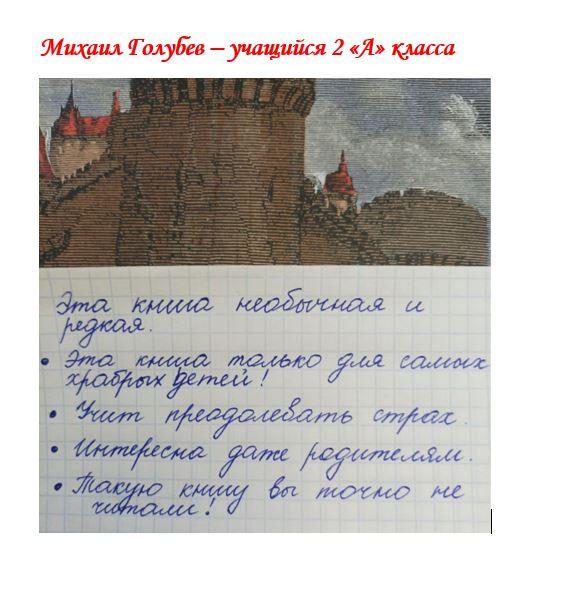 Михаил Голубев – учащийся 2 «А» класса
Эта книга необычная и
редкая.
• Эта книга только для самых
храбрых детей!
• Учит преодолевать страх.
• Интересна даже родителям.
• Такую книгу вы точно не
читали!